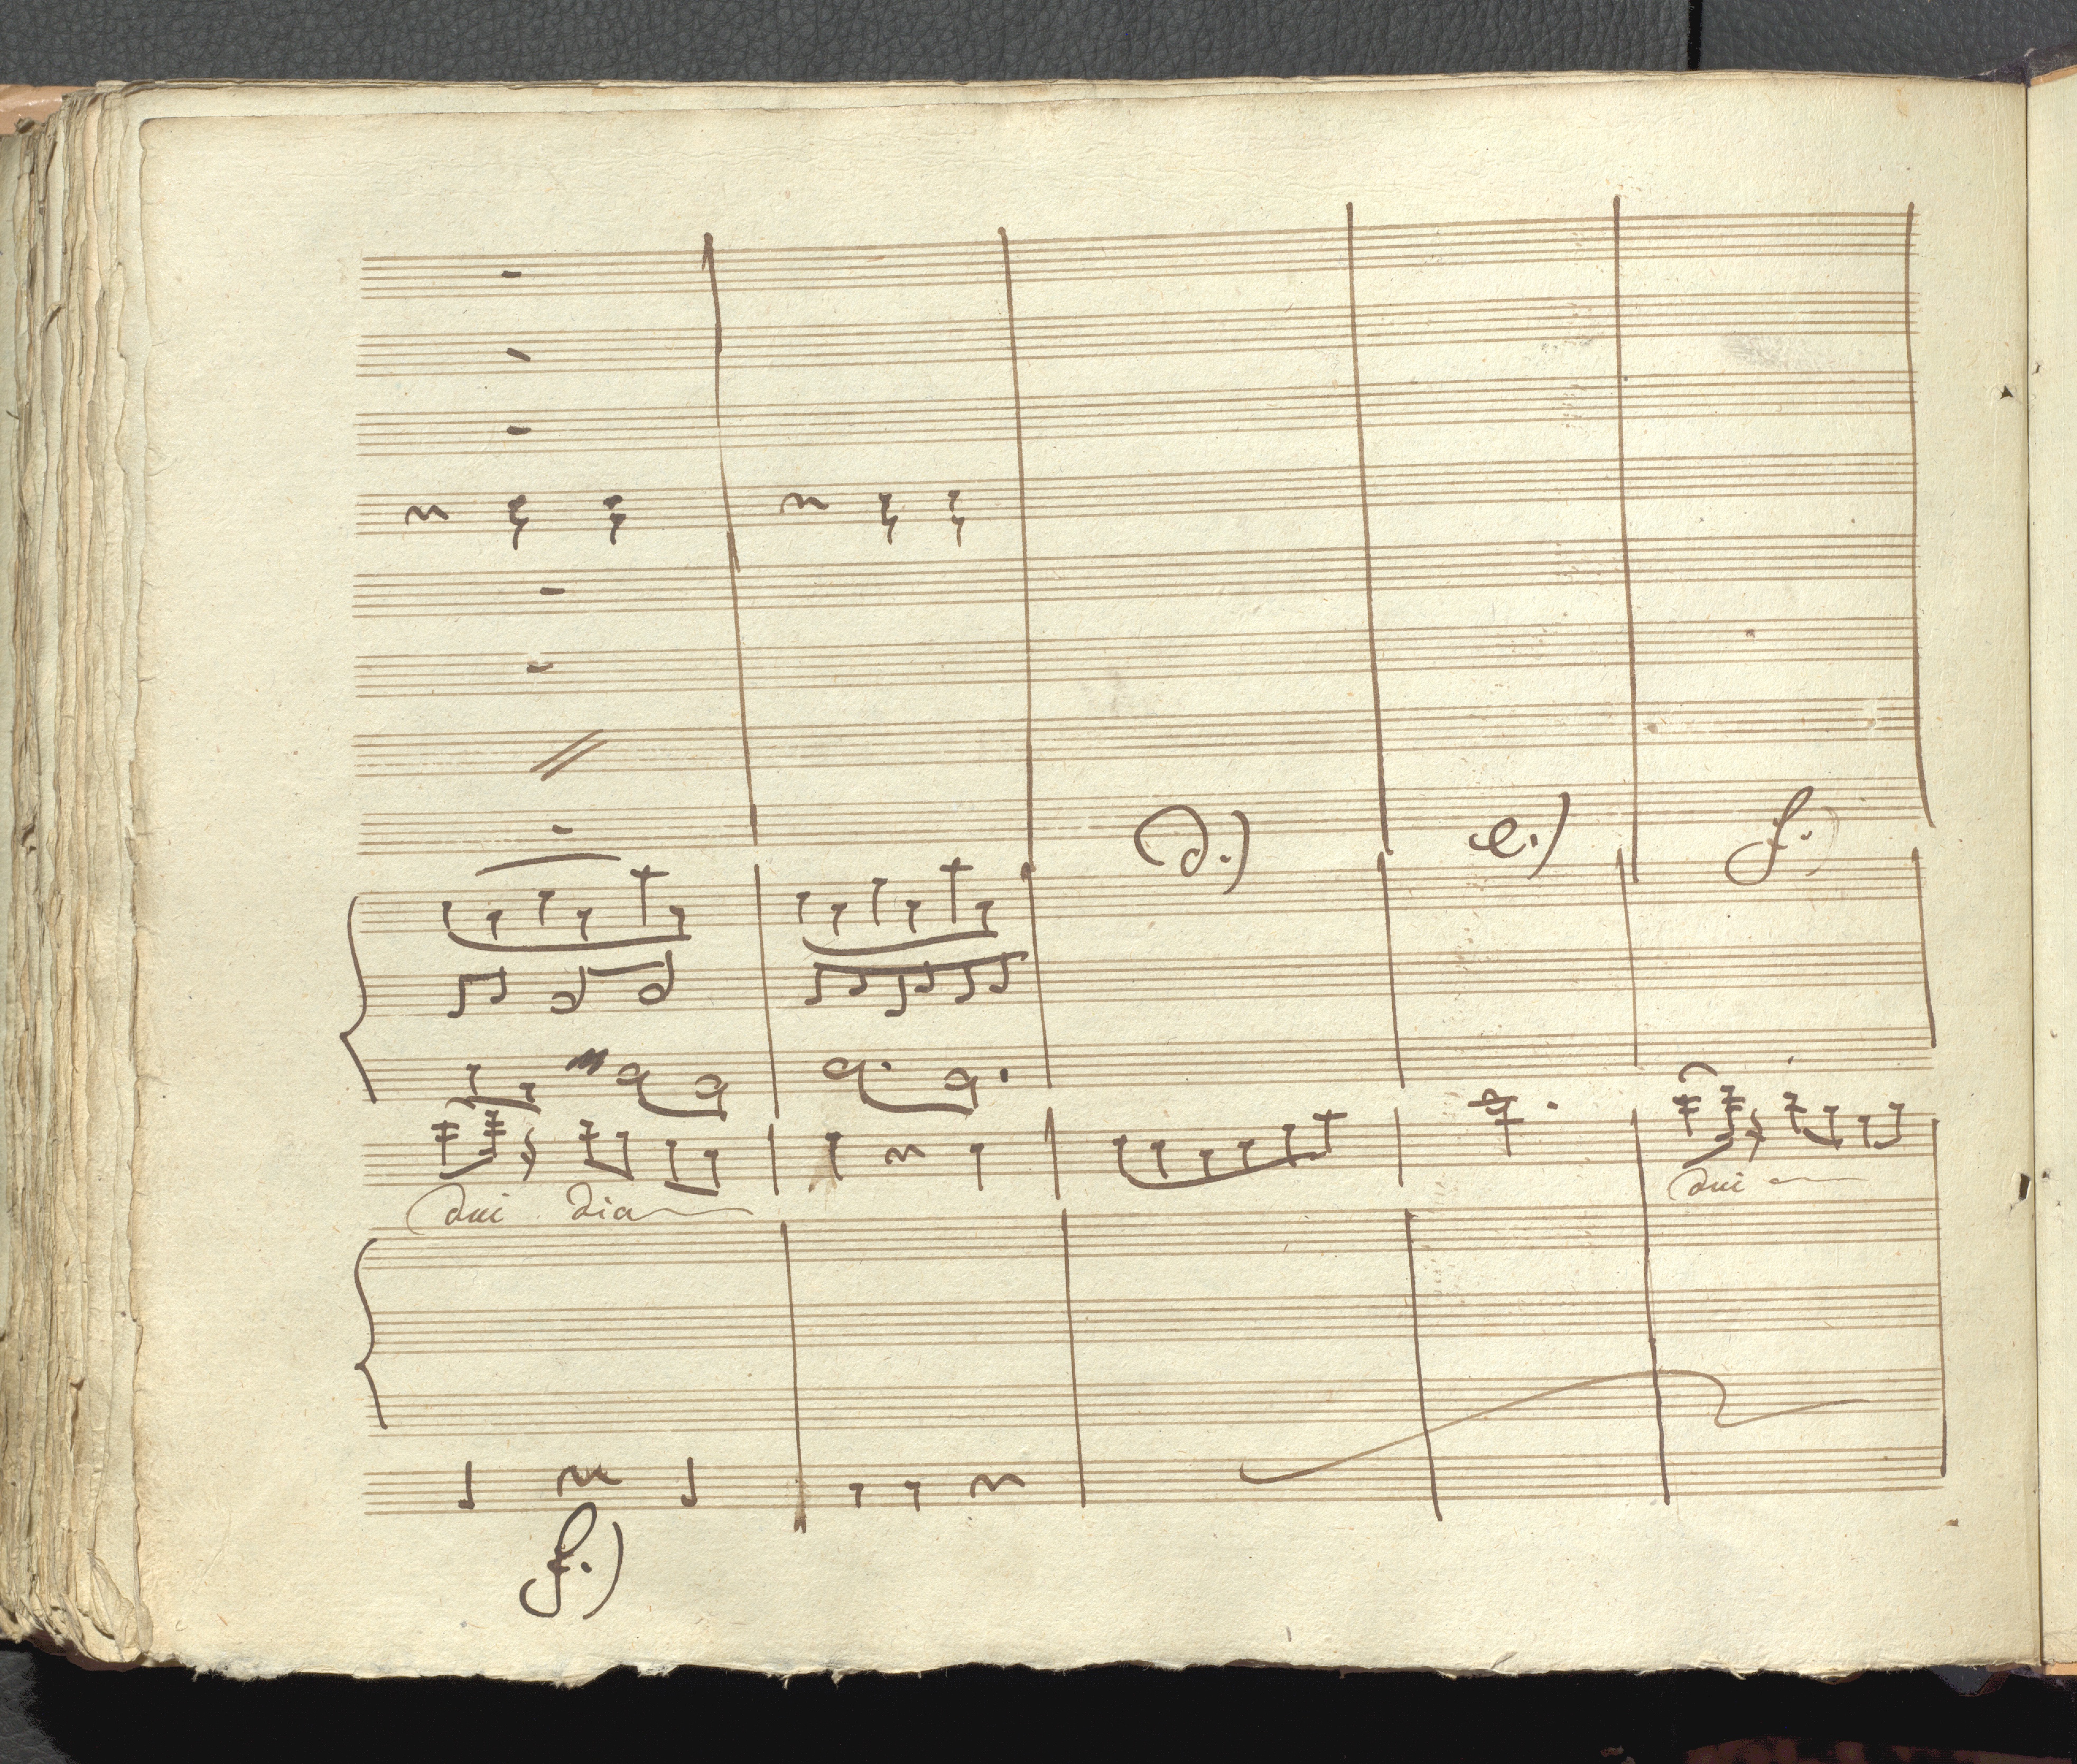 d.) e.) f.)
dui dia
dui
f.)